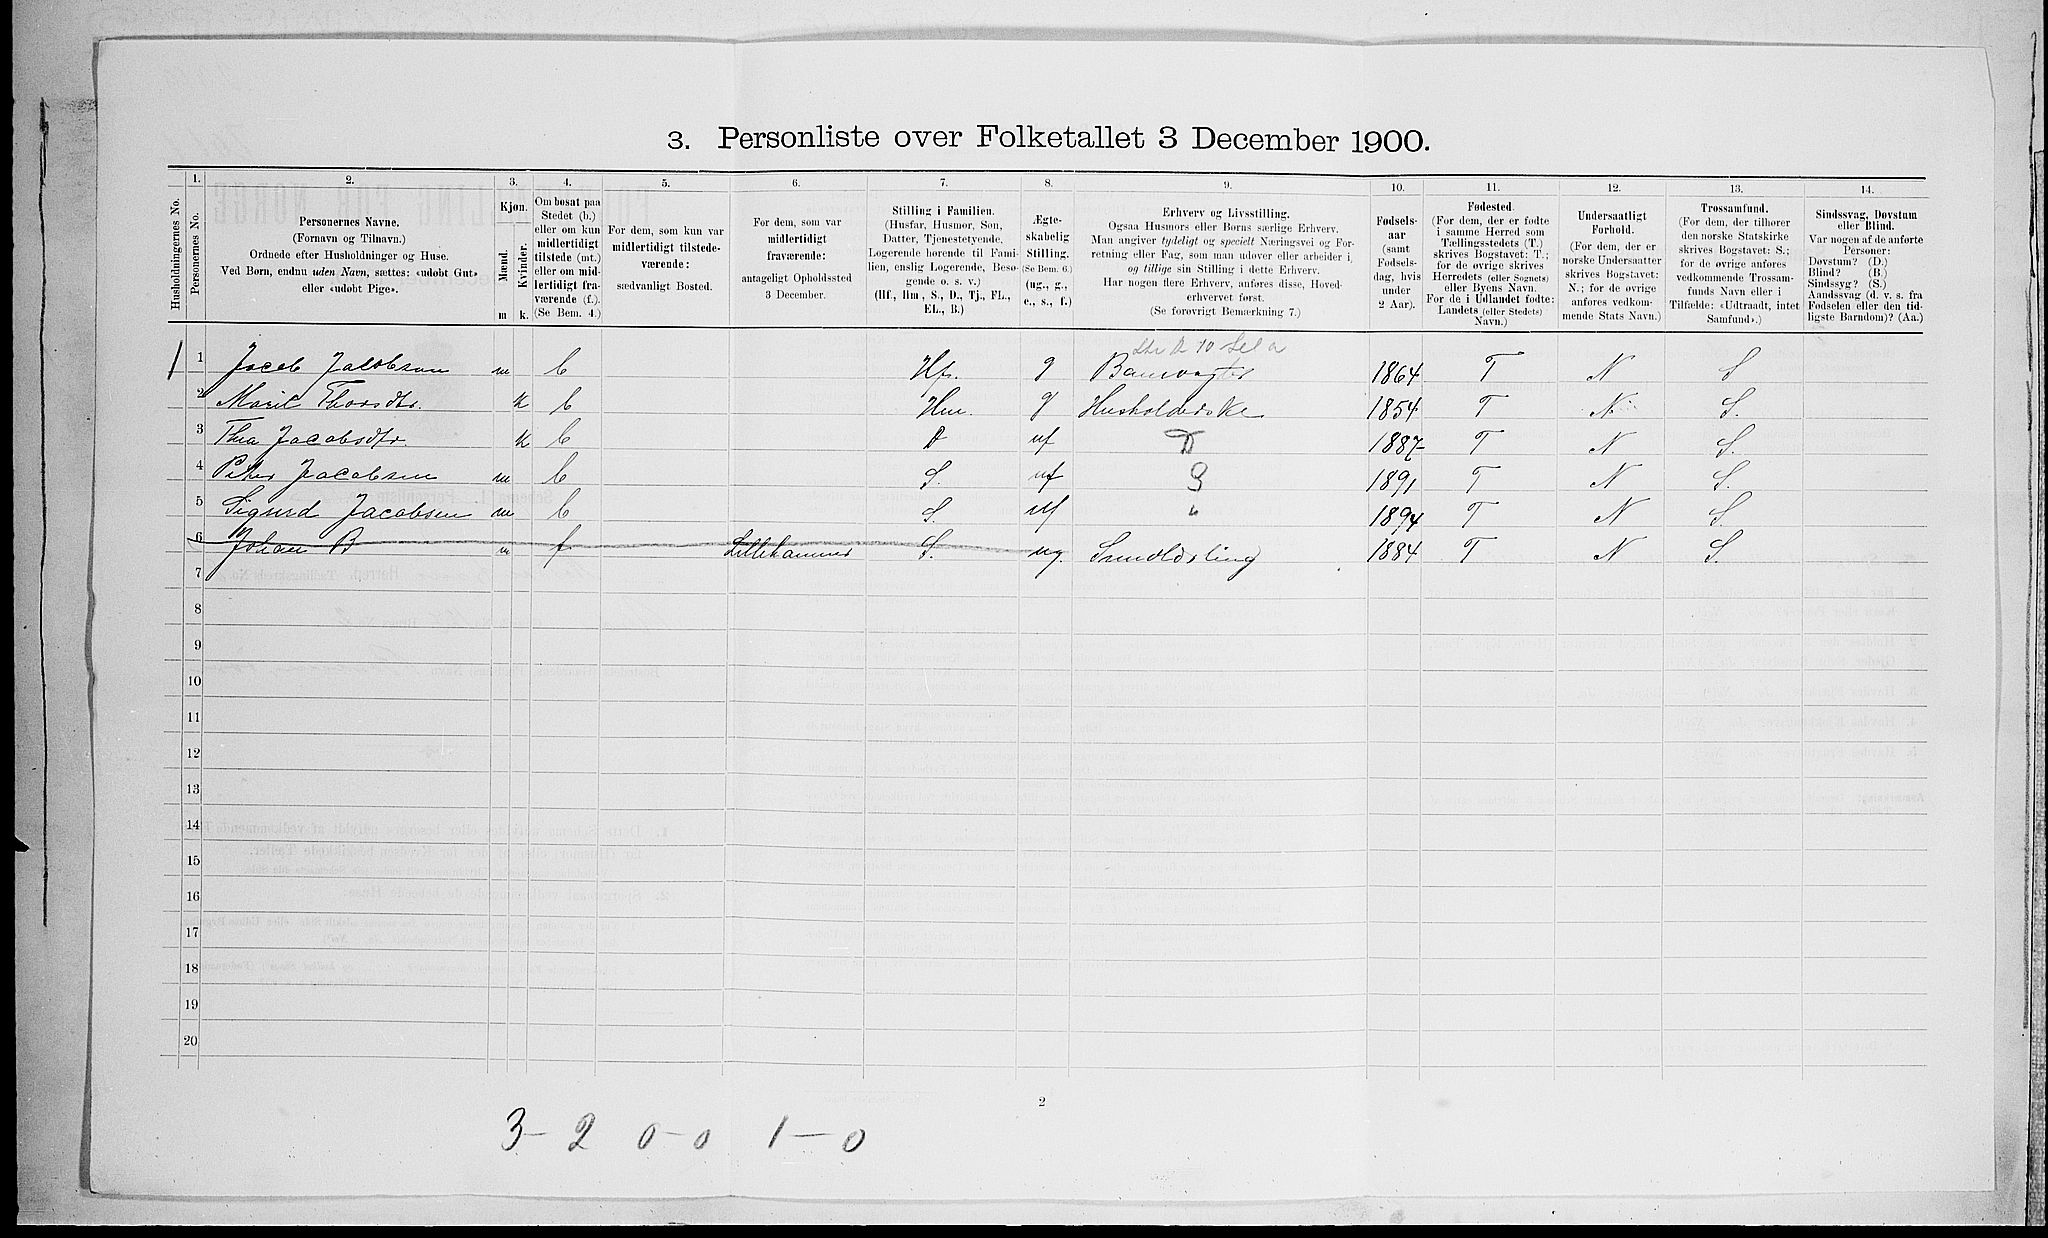 3. Personliste over Folketallet 3 December 1900.
1. 2. 3. 4. 5. 6. 7. 8. 9. 10. 11. 12. 13. 14.
Husholdningernes No.
Personernes No.
Personernes Navne.
(Fornavn og Tilnavn.)
Ordnede efter Husholdninger og Huse.
Ved Børn, endnu uden Navn, sættes: «udøbt Gut»
eller «udøbt Pige».
Kjøn.
Mænd.
Kvinder.
m k.
Om bosat paa
Stedet (b.)
eller om kun
midlertidigt
tilstede (mt.)
eller om mid-
lertidigt fra-
værende (f.)
(Se Bem. 4.)
For dem, som kun var
midlertidigt tilstede-
værende:
sædvanligt Bosted.
For dem, som var
midlertidigt
fraværende:
antageligt Opholdssted
3 December.
Stilling i Familien.
(Husfar, Husmor, Søn,
Datter, Tjenestetyende,
Logerende hørende til Fami-
lien, enslig Logerende, Besø-
gende o. s. v.)
(Hf., Hm., S., D., Tj., FL.,
EL., B.)
Ægte-
skabelig
Stilling.
(Se Bem. 6.)
(ug., g.,
e., s., f.)
Erhverv og Livsstilling.
Ogsaa Husmors eller Børns særlige Erhverv.
Man angiver tydeligt og specielt Næringsvei og For-
retning eller Fag, som man udøver eller arbeider i,
og tillige sin Stilling i dette Erhverv.
Har nogen flere Erhverv, anføres disse, Hoved-
erhvervet først.
(Se forøvrigt Bemærkning 7.)
Fødsels-
aar
(samt
Fødsels-
dag, hvis
under
2 Aar).
Fødested.
(For dem, der er fødte
i samme Herred som
Tællingsstedets (T.)
skrives Bogstavet: T.;
for de øvrige skrives
Herredets (eller Sognets)
eller Byens Navn.
For de i Udlandet fødte:
Landets (eller Stedets)
Navn.)
Undersaatligt
Forhold.
(For dem, der er
norske Undersaatter
skrives Bogstavet:
N.; for de øvrige
anføres vedkom-
mende Stats Navn.)
Trossamfund.
(For dem, der tilhører
den norske Statskirke
skrives Bogstavet: S.;
for de øvrige anføres
vedkommende Trossam-
funds Navn eller i
Tilfælde: «Udtraadt, intet
Samfund».)
Sindssvag, Døvstum
eller Blind.
Var nogen af de anførte
Personer:
Døvstum? (D.)
Blind? (B.)
Sindssyg? (S.)
Aandssvag (d. v. s. fra
Fødselen eller den tid-
ligste Barndom)? (Aa.)
1 1 Jacob Jacobsen m b Hf. g Banevogter 1864 T N S
2 Marit Thorsdtr. k b Hm. g Husholderske 1854 T N S.
3 Thea Jacobsdtr k b D ug D 1887 T N S.
4 Peter Jacobsen m b S. ug S 1891 T N S.
5 Sigurd Jacobsen m b S. ug " 1894 T N S.
6 Johan B m f Lillehammer S. ug. Smedlærling 1884 T N S.
7
8
9
10
11
12
13
14
15
16
17
18
19
20
2
3-2 0-0 1-0